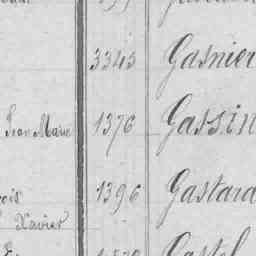 3343 Gasnier
Jean Marie 1376 Gassin
1396 Gastard
Xavier